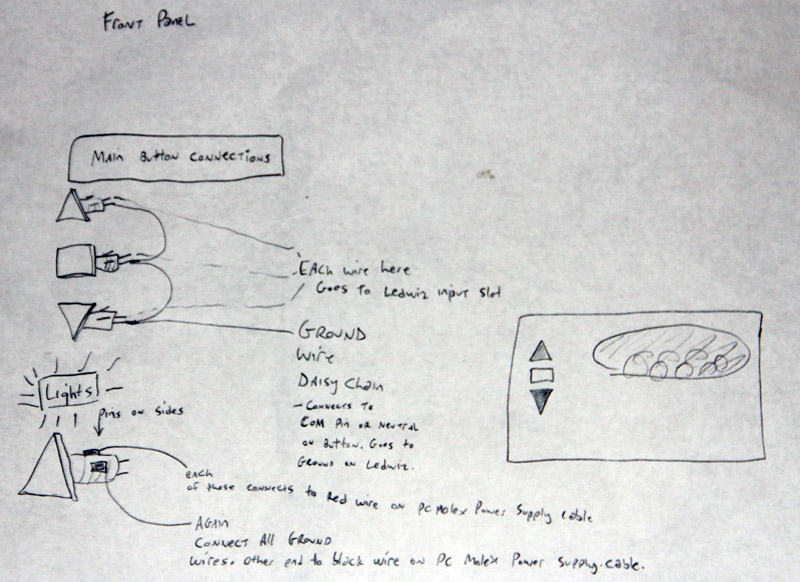 FRONT PANEL
MAIN BUTTON CONNECTIONS
EACH wire here
Goes to Ledwiz input slot
GROUND
Wire
DAISY Chain
- CONNECTS TO
COM PIN OR NEUTRAL
ON BUTTON. Goes to
GROUND ON LEDWIZ.
Lights
pins on sides
each
of these connects to Red wire on PC Molex Power Supply cable
AGAIN
CONNECT All GROUND
Wires. Other end to black wire on PC Molex Power Supply cable.